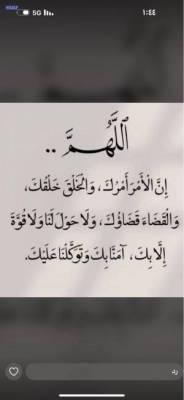 5G
١:٤٤
اللَّهُمَّ ..
إِنَّ الْأَمْرَ أَمْرُكَ، وَالْخَلْقَ خَلْقُكَ،
وَالْقَضَاءَ قَضَاؤُكَ، وَلَا حَوْلَ لَنَا وَلَا قُوَّةَ
إِلَّا بِكَ، آمَنَّا بِكَ وَتَوَكَّلْنَا عَلَيْكَ.